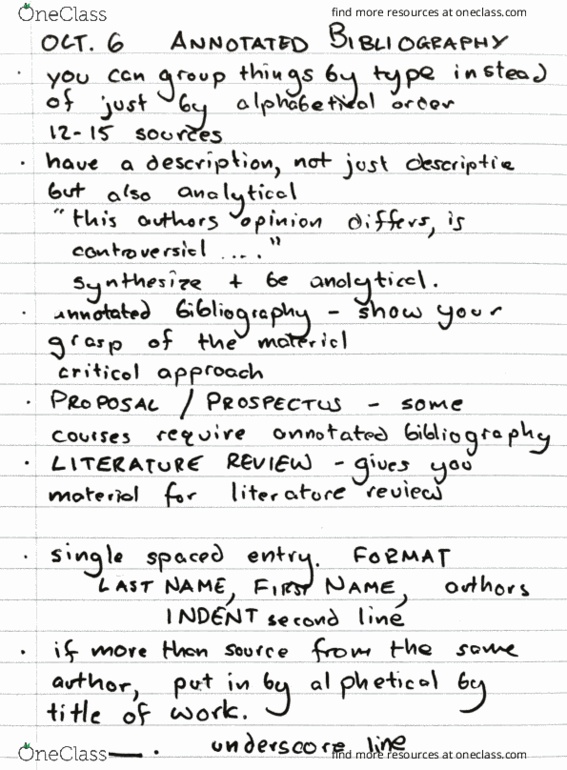 OneClass find more resources at oneclass.com
OCT. 6 ANNOTATED BIBLIOGRAPHY
· you can group things by type instead
of just by alphabetical order
12-15 sources
· have a description, not just descriptie
but also analytical
"this authors opinion differs, is
controversial ...."
synthesize + be analytical.
· annotated bibliography - show your
grasp of the material
critical approach
· PROPOSAL / PROSPECTUS - some
courses require annotated bibliography
· LITERATURE REVIEW - gives you
material for literature review
· single spaced entry. FORMAT
LAST NAME, FIRST NAME, authors
INDENT second line
· if more than source from the same
author, put in by alphetical by
title of work.
__ . underscore line
OneClass find more resources at oneclass.com